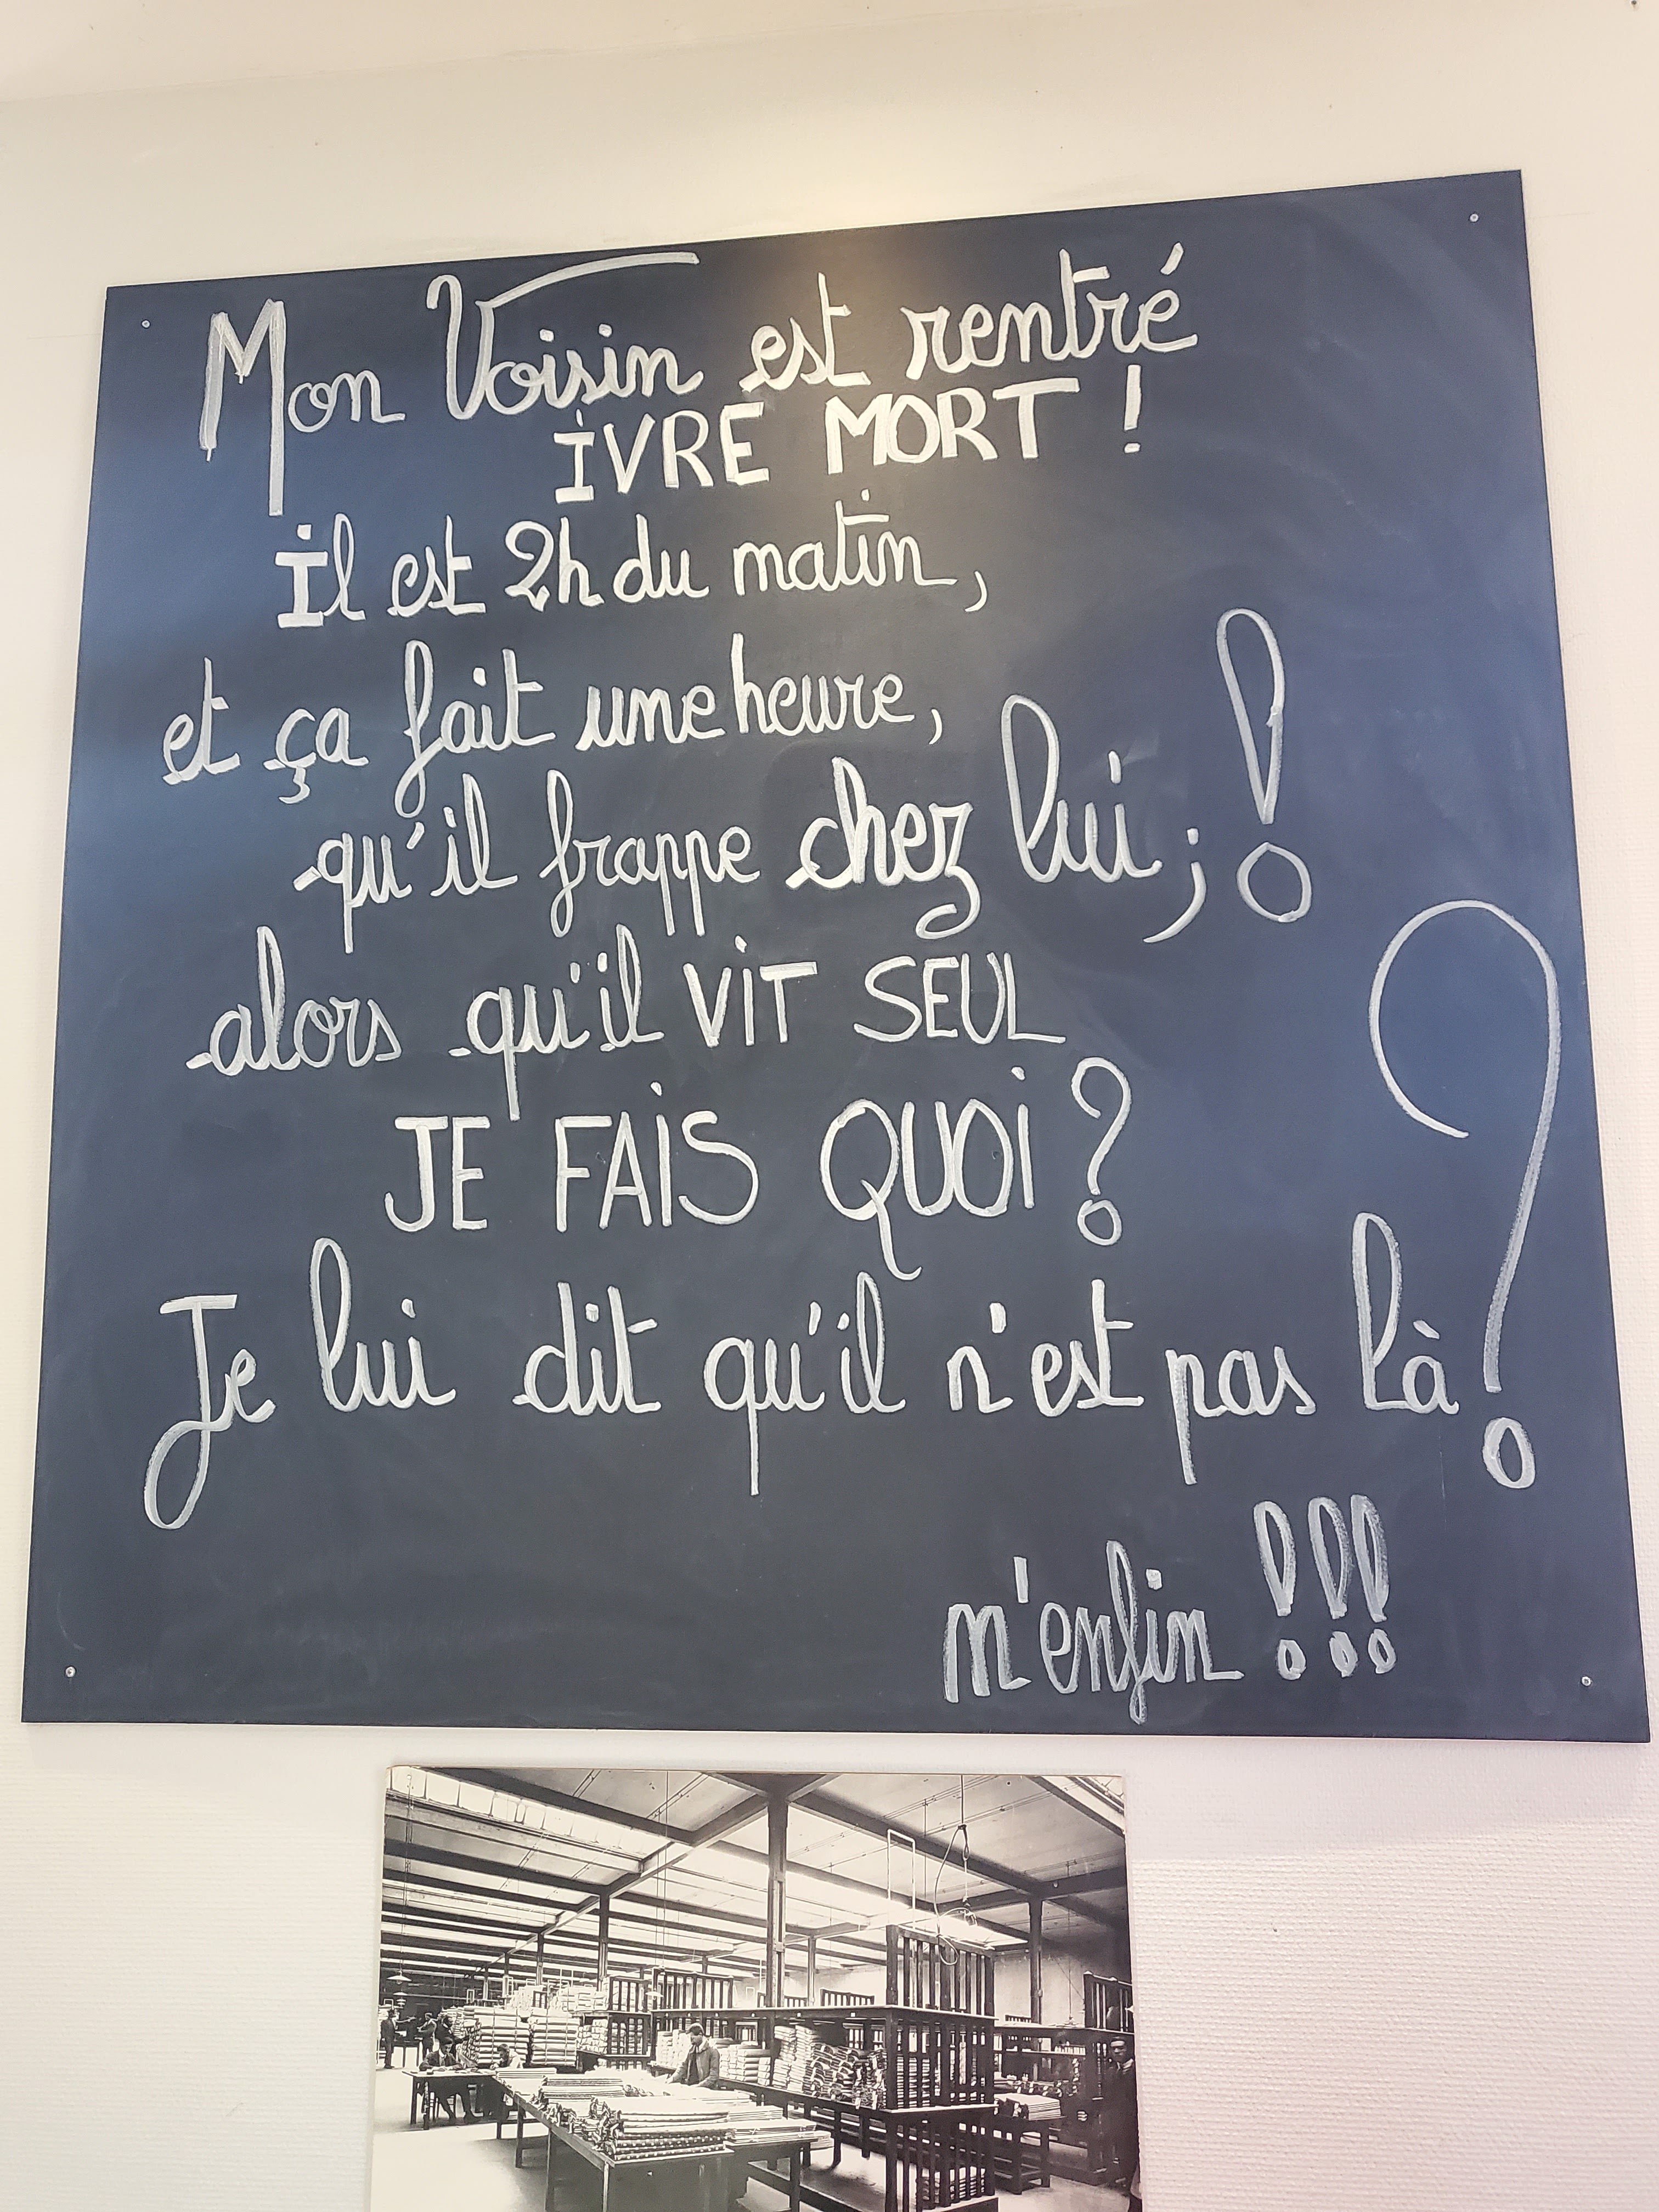 Mon Voisin est rentré
IVRE MORT !
Il est 2h du matin,
et ça fait une heure,
qu'il frappe chez lui ; !
alors qu'il VIT SEUL
JE FAIS QUOI ?
Je lui dit qu'il n'est pas là ?
m'enfin !!!